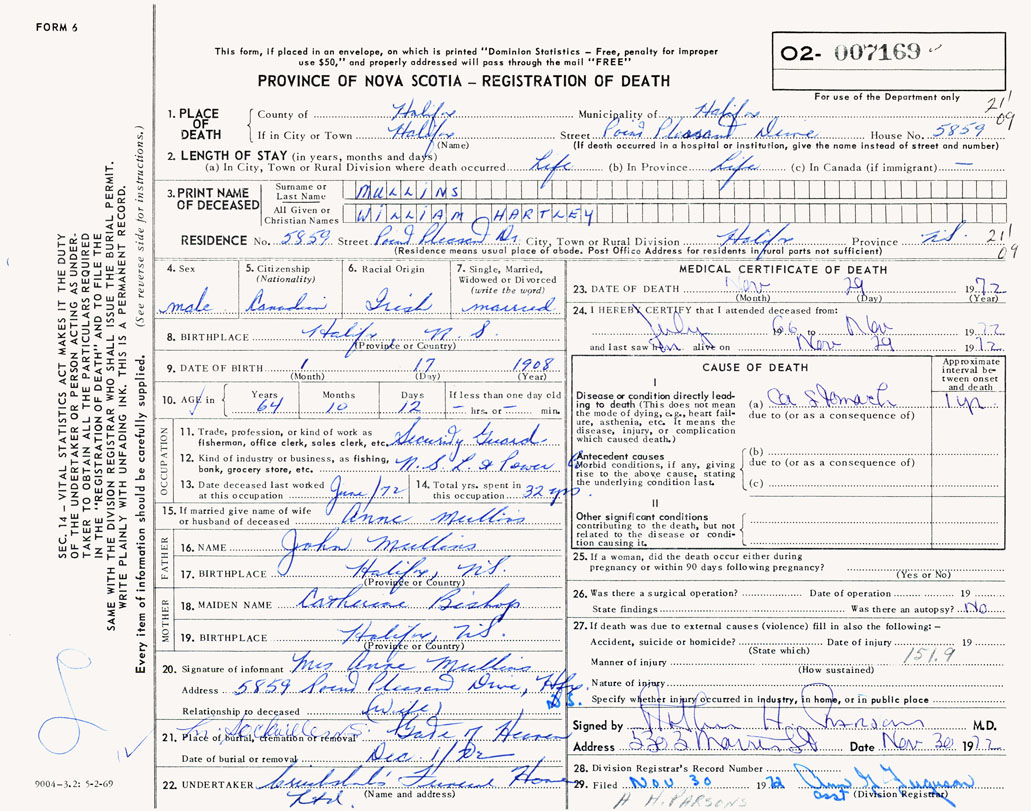 FORM 6
This form, if placed in an envelope, on which is printed "Dominion Statistics – Free, penalty for improper
use $50," and properly addressed will pass through the mail "FREE"
PROVINCE OF NOVA SCOTIA – REGISTRATION OF DEATH
02- 007169
For use of the Department only
21 09
1. PLACE OF DEATH
County of Halifax Municipality of Halifax
If in City or Town Halifax Street Point Pleasant Drive House No. 5859
(Name) (If death occurred in a hospital or institution, give the name instead of street and number)
2. LENGTH OF STAY (in years, months and days)
(a) In City, Town or Rural Division where death occurred Life (b) In Province Life (c) In Canada (if immigrant) —
3. PRINT NAME OF DECEASED
Surname or Last Name MULLINS
All Given or Christian Names WILLIAM HARTLEY
RESIDENCE No. 5859 Street Point Pleasant Dr. City, Town or Rural Division Halifax Province N.S. 21 09
(Residence means usual place of abode. Post Office Address for residents in rural parts not sufficient)
4. Sex male
5. Citizenship (Nationality) Canadian
6. Racial Origin Irish
7. Single, Married, Widowed or Divorced (write the word) married
8. BIRTHPLACE Halifax N.S.
(Province or Country)
9. DATE OF BIRTH 1 17 1908
(Month) (Day) (Year)
10. AGE in Years 64 Months 10 Days 12 If less than one day old – hrs. or – min.
OCCUPATION
11. Trade, profession, or kind of work as fisherman, office clerk, sales clerk, etc. Security Guard
12. Kind of industry or business, as fishing, bank, grocery store, etc. N.S. L & Power Co
13. Date deceased last worked at this occupation June/72
14. Total yrs. spent in this occupation 32 yrs.
15. If married give name of wife or husband of deceased Anne Mullins
FATHER
16. NAME John Mullins
17. BIRTHPLACE Halifax, N.S.
(Province or Country)
MOTHER
18. MAIDEN NAME Catherine Bishop
19. BIRTHPLACE Halifax, N.S.
(Province or Country)
20. Signature of informant Mrs Anne Mullins
Address 5859 Point Pleasant Drive, Hfx. N.S.
Relationship to deceased (wife)
21. Place of burial, cremation or removal Gate of Heaven
Date of burial or removal Dec 1/72
22. UNDERTAKER Funeral Home Ltd.
(Name and address)
MEDICAL CERTIFICATE OF DEATH
23. DATE OF DEATH Nov 29 1972
(Month) (Day) (Year)
24. I HEREBY CERTIFY that I attended deceased from:
July 66 to Nov 1972
and last saw him alive on Nov 29 1972
CAUSE OF DEATH
Approximate interval between onset and death
I
Disease or condition directly leading to death (This does not mean the mode of dying, e.g., heart failure, asthenia, etc. It means the disease, injury, or complication which caused death.)
(a) Ca Stomach 1 yr.
due to (or as a consequence of)
Antecedent causes
Morbid conditions, if any, giving rise to the above cause, stating the underlying condition last.
(b)
due to (or as a consequence of)
(c)
II
Other significant conditions contributing to the death, but not related to the disease or condition causing it.
25. If a woman, did the death occur either during
pregnancy or within 90 days following pregnancy?
(Yes or No)
26. Was there a surgical operation? Date of operation 19
State findings Was there an autopsy? No
27. If death was due to external causes (violence) fill in also the following:–
Accident, suicide or homicide? Date of injury 19
(State which) 151.9
Manner of injury
(How sustained)
Nature of injury
Specify whether injury occurred in industry, in home, or in public place
Signed by Arthur H. Parsons M.D.
Address Morris St Date Nov 30 1972
28. Division Registrar's Record Number
29. Filed NOV 30 1972 Ann G. Ferguson
asst (Division Registrar)
A H. PARSONS
SEC. 14 – VITAL STATISTICS ACT MAKES IT THE DUTY
OF THE UNDERTAKER OR PERSON ACTING AS UNDER-
TAKER TO OBTAIN ALL THE PARTICULARS REQUIRED
IN THE "REGISTRATION OF DEATH" AND TO FILE THE
SAME WITH THE DIVISION REGISTRAR WHO SHALL ISSUE THE BURIAL PERMIT.
WRITE PLAINLY WITH UNFADING INK. THIS IS A PERMANENT RECORD.
Every item of information should be carefully supplied. (See reverse side for instructions.)
9004-3.2: 5-2-69